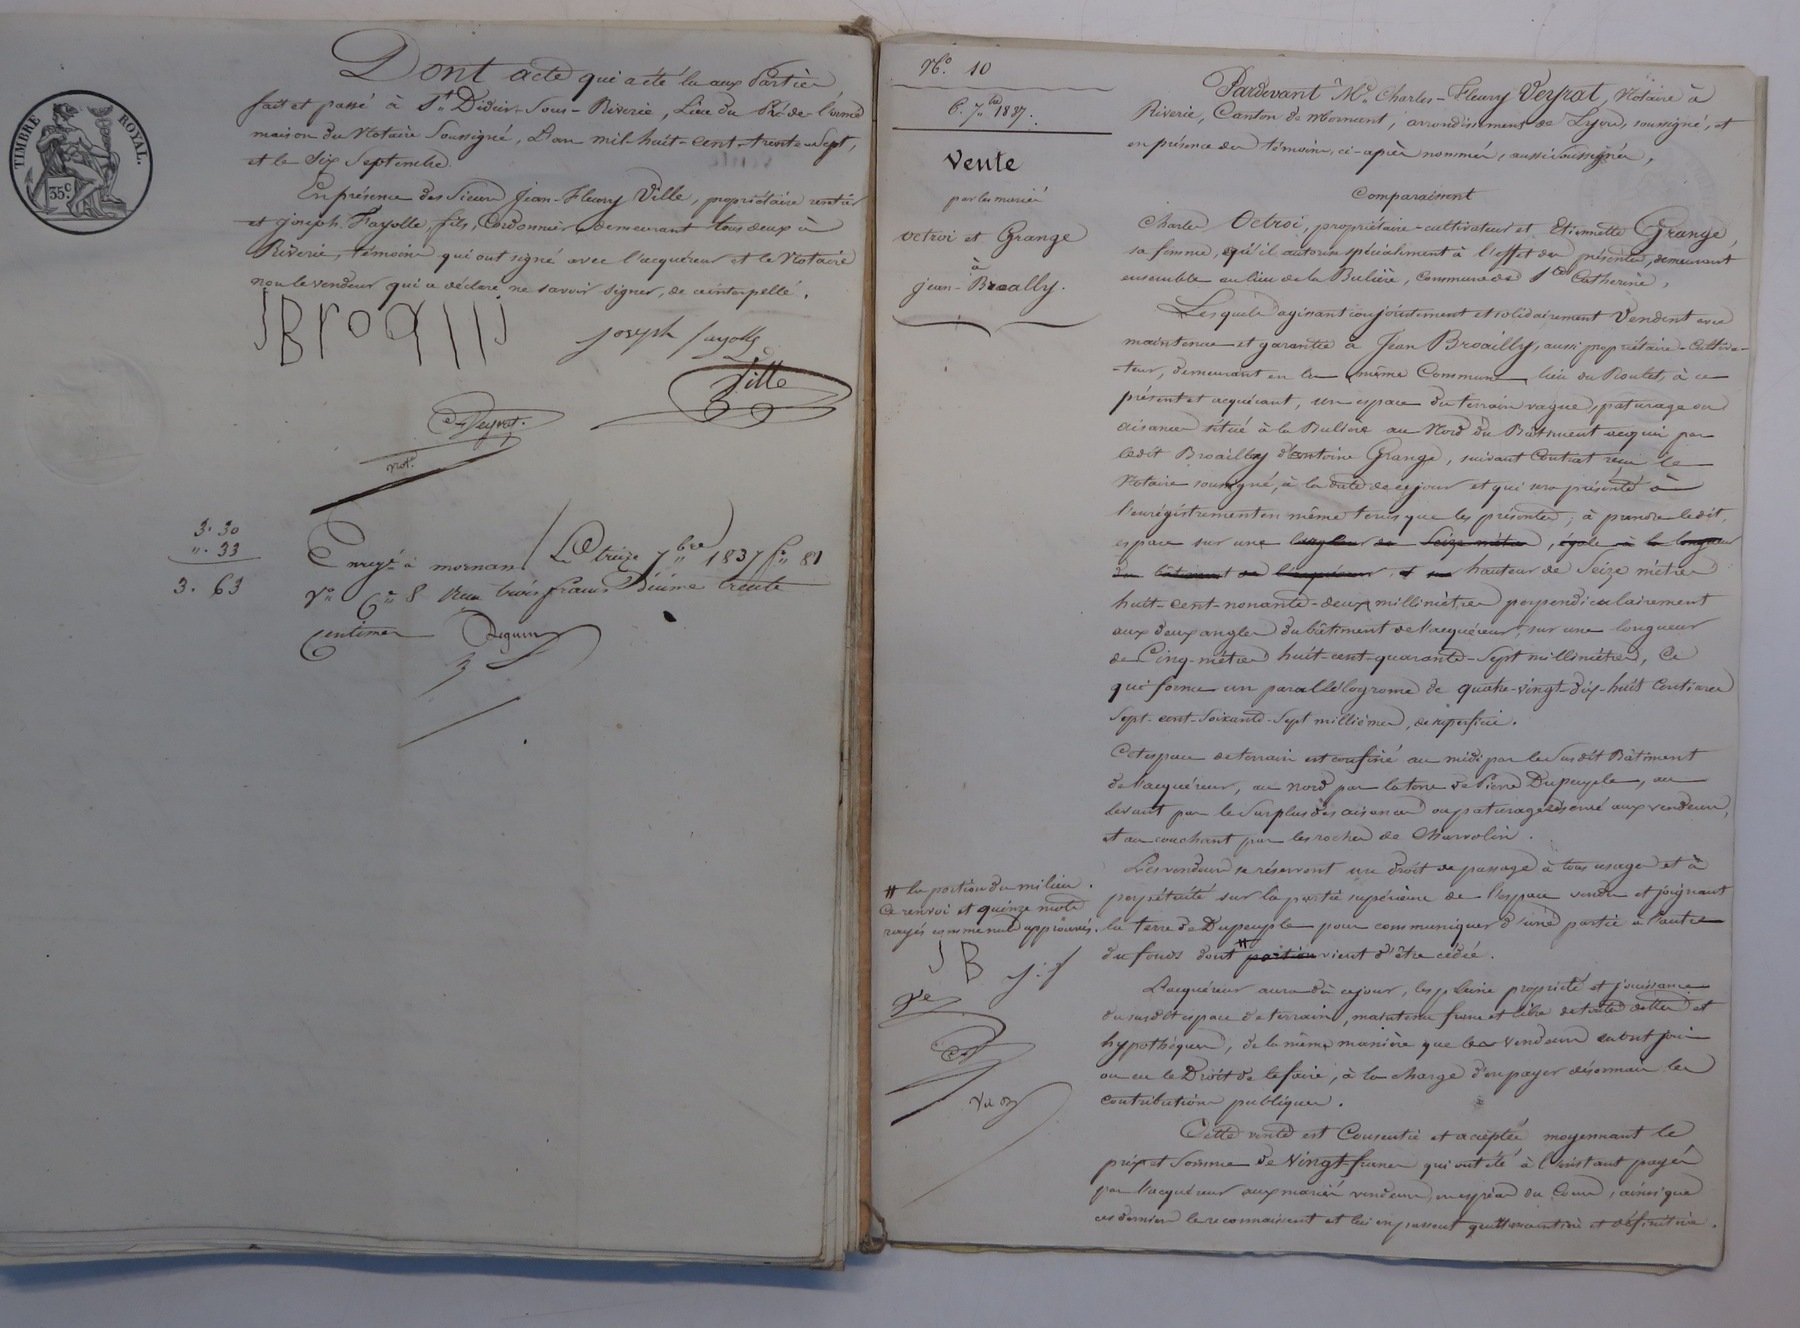 TIMBRE ROYAL.
35c.
Dont acte qui a été lu aux Parties
fait et passé à St Didier-Sous-Riverie, Lieu du Pré de l'orme
maison du Notaire Soussigné, L'an mil-huit-cent-trente-sept,
et le Six Septembre.
En présence des Sieurs Jean-Fleury Ville, propriétaire rentier
et Joseph Fayolle, fils, Cordonnier, demeurant tous deux à
Riverie, témoins qui ont signé avec l'acquéreur et le Notaire
non le vendeur qui a déclaré ne savoir signer, de ce interpellé.
JBroallj
joseph fayolle
Ville
Veyrat.
not.
3. 30
". 33
3. 63
Enregé à mornant Le treize 7bre 1837 fo 81
vo Ce 8 Reçu trois francs Décime trente
Centimes
No. 10
6. 7bre 1837.
Vente
par les mariés
Octroi et Grange
à
jean-Broally.
Pardevant Me Charles-Fleury Veyrat, Notaire à
Riverie, Canton de Mornant, arrondissement de Lyon, soussigné, et
en présence des témoins, ci-après nommés, aussi soussignés,
Comparaissent
Charles Octroi, propriétaire-cultivateur et Etiennette Grange,
sa femme, qu'il autorise spécialement à l'effet des présentes, demeurant
ensemble au lieu de la Bulière, Commune de Ste Catherine,
Lesquels agissant conjointement et solidairement Vendent avec
maintenue et garantie à Jean Broailly, aussi propriétaire-Cultiva-
teur, demeurant en la même Commune, lieu du Poulet, à ce
présent et acquérant, un espace du terrain vague, paturage ou
aisances situé à la Bulière au Nord du Bâtiment acquis par
ledit Broailly d'Antoine Grange, suivant Contrat reçu le
Notaire soussigné, à la date de ce jour et qui sera présenté à
l'enrégistrement en même tems que les présentes, à prendre ledit
espace sur une longueur de Seize mètres, égale à la longueur
du bâtiment de l'acquéreur, et sur hauteur de Seize mètres
huit-cent-nonante-deux millimètres perpendiculairement
aux deux angles du bâtiment de l'acquéreur, sur une longueur
de Cinq-mètres huit-cent-quarante-Sept millimètres, Ce
qui forme un parallélograme de quatre-vingt-dix-huit Centiares
Sept-cent-Soixante-Sept millièmes, de superficie.
Cet espace de terrain est confiné au midi par le Susdit Bâtiment
de l'acquéreur, au Nord par la terre de Pierre Dupeuple, au
levant par le Surplus des aisances ou paturages réservé aux vendeurs,
et au couchant par les rochers de Charvolin.
Les vendeurs se réservent un droit de passage à tous usages et à
perpétuité sur la partie supérieure de l'espace vendu et joignant
la terre de Dupeuple pour communiquer d'une partie à l'autre
du fonds dont # portion vient d'être cédée.
# la portion du milieu.
Ce renvoi et quinze mots
rayés comme nuls approuvés.
J B
j. f
L'acquéreur aura dès ce jour, les pleine propriété et jouissance
du susdit espace de terrain, maintenu franc et libre de toutes dettes et
hypothèques, de la même manière que les vendeurs en ont joui
ou eu le Droit de le faire, à la charge d'en payer désormais les
contributions publiques.
Cette vente est Consentie et acceptée moyennant le
prix et Somme de Vingt-francs qui ont été à l'instant payés
par l'acquéreur aux mariés vendeurs, en espèces du Cours, ainsi que
ces derniers le reconnaissent et lui en passent quittance entière et définitive.